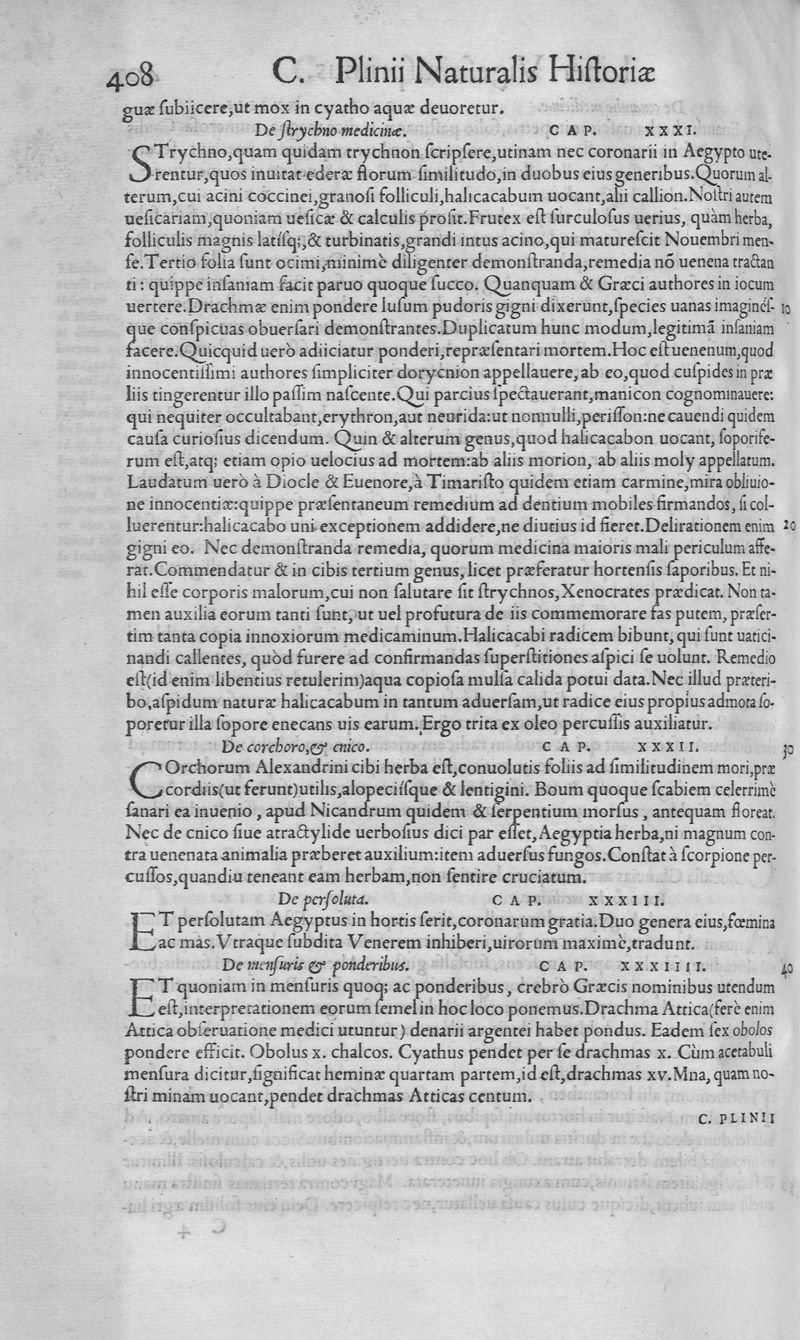 408 C. Plinii Naturalis Hiſtoriæ
guæ ſubiicere,ut mox in cyatho aquæ deuoretur.
De ſtrychno medicinæ. CAP. XXXI.
STrychno,quam quidam trychnon ſcripſere,utinam nec coronarii in Aegypto ute-
rentur,quos inuitat ederæ florum ſimilitudo,in duobus eius generibus.Quorum al-
terum,cui acini coccinei,granoſi folliculi,halicacabum uocant,alii callion.Noſtri autem
ueſicariam,quoniam ueſicæ & calculis proſit.Frutex eſt ſurculoſus uerius, quàm herba,
folliculis magnis latiſq;,& turbinatis,grandi intus acino,qui matureſcit Nouembri men-
ſe.Tertio folia ſunt ocimi,minimè diligenter demonſtranda,remedia nõ uenena tractan
ti : quippe inſaniam facit paruo quoque ſucco. Quanquam & Græci authores in iocum
uertere.Drachmæ enim pondere luſum pudoris gigni dixerunt,ſpecies uanas imaginéſ- 10
que conſpicuas obuerſari demonſtrantes.Duplicatum hunc modum,legitimã inſaniam
facere.Quicquid uerò adiiciatur ponderi,repræſentari mortem.Hoc eſt uenenum,quod
innocentiſſimi authores ſimpliciter dorycnion appellauere, ab eo,quod cuſpides in præ
liis tingerentur illo paſſim naſcente.Qui parcius ſpectauerant,manicon cognominauere:
qui nequiter occultabant,erythron,aut neurida:ut nonnulli,periſſon:ne cauendi quidem
cauſa curioſius dicendum. Quin & alterum genus,quod halicacabon uocant, ſoporife-
rum eſt,atq; etiam opio uelocius ad mortem:ab aliis morion, ab aliis moly appellatum.
Laudatum uerò à Diocle & Euenore,à Timariſto quidem etiam carmine,mira obliuio-
ne innocentiæ:quippe præſentaneum remedium ad dentium mobiles firmandos, ſi col-
luerentur:halicacabo uni exceptionem addidere,ne diutius id fieret.Delirationem enim 20
gigni eo. Nec demonſtranda remedia, quorum medicina maioris mali periculum affe-
rat.Commendatur & in cibis tertium genus, licet præferatur hortenſis ſaporibus. Et ni-
hil eſſe corporis malorum,cui non ſalutare ſit ſtrychnos,Xenocrates prædicat. Non ta-
men auxilia eorum tanti ſunt, ut uel profutura de iis commemorare fas putem, præſer-
tim tanta copia innoxiorum medicaminum.Halicacabi radicem bibunt, qui ſunt uatici-
nandi callentes, quòd furere ad confirmandas ſuperſtitiones aſpici ſe uolunt. Remedio
eſt(id enim libentius retulerim)aqua copioſa mulſa calida potui data.Nec illud præteri-
bo,aſpidum naturæ halicacabum in tantum aduerſam,ut radice eius propius admota ſo-
poretur illa ſopore enecans uis earum.Ergo trita ex oleo percuſſis auxiliatur.
De corchoro,& cnico. CAP. XXXII. 30
COrchorum Alexandrini cibi herba eſt,conuolutis foliis ad ſimilitudinem mori,præ
cordiis(ut ferunt)utilis,alopeciiſque & lentigini. Boum quoque ſcabiem celerrimè
ſanari ea inuenio , apud Nicandrum quidem & ſerpentium morſus , antequam floreat.
Nec de cnico ſiue atractylide uerboſius dici par eſſet, Aegyptia herba,ni magnum con-
tra uenenata animalia præberet auxilium:item aduerſus fungos.Conſtat à ſcorpione per-
cuſſos,quandiu teneant eam herbam,non ſentire cruciatum.
De perſoluta. CAP. XXXIII.
ET perſolutam Aegyptus in hortis ſerit,coronarum gratia.Duo genera eius,fœmina
ac mas.Vtraque ſubdita Venerem inhiberi,uirorum maximè,tradunt.
De menſuris & ponderibus. CAP. XXXIIII. 40
ET quoniam in menſuris quoq; ac ponderibus, crebrò Græcis nominibus utendum
eſt,interpretationem eorum ſemel in hoc loco ponemus.Drachma Attica(ferè enim
Attica obſeruatione medici utuntur) denarii argentei habet pondus. Eadem ſex obolos
pondere efficit. Obolus x. chalcos. Cyathus pendet per ſe drachmas x. Cùm acetabuli
menſura dicitur,ſignificat heminæ quartam partem,id eſt,drachmas xv.Mna, quam no-
ſtri minam uocant,pendet drachmas Atticas centum.
C. PLINII